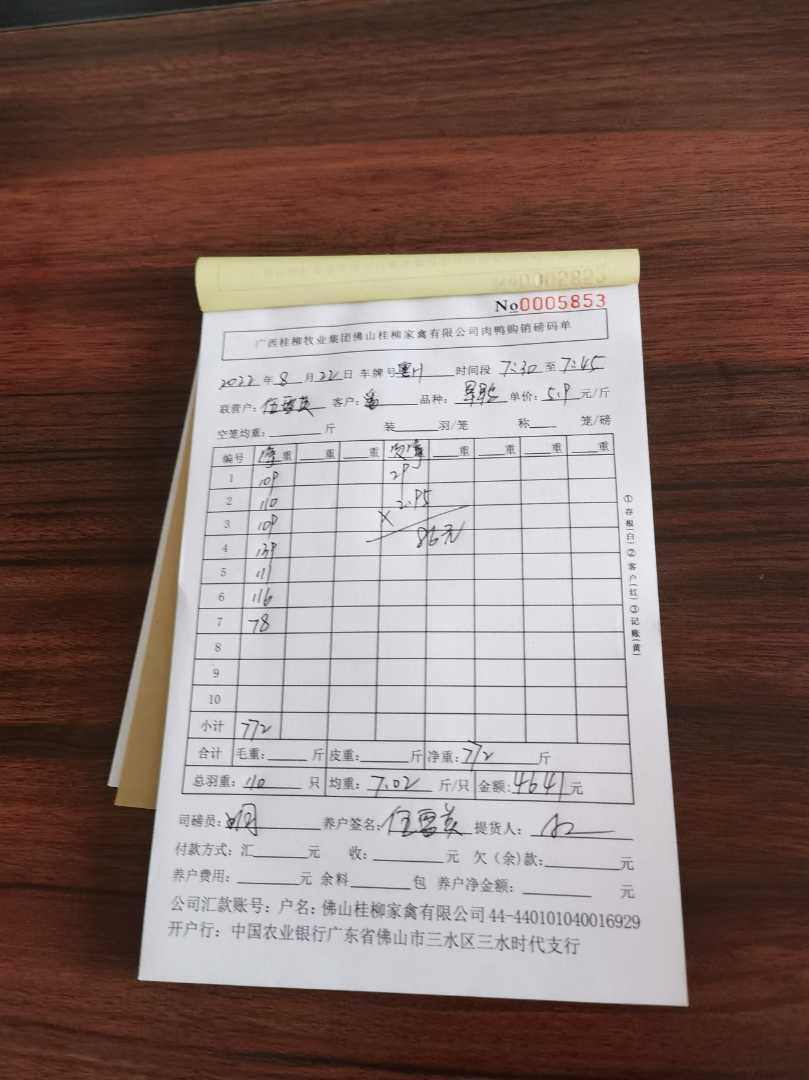 No0005853
广西桂柳牧业集团佛山桂柳家禽有限公司肉鸭购销磅码单
2022年8月22日 车牌号 时间段 7:30 至 7:45
联营户: 伍雪英 客户: 品种: 单价: 5.9 元/斤
空笼均重: 斤 装 羽/笼 称 笼/磅
编号 净重 重 重 重 重 重 重 重
1 109 29
2 110 2.95
3 109 ×
4 139 86元
5 111
6 116
7 78
8
9
10
小计 772
合计 毛重: 斤 皮重: 斤 净重: 772 斤
总羽重: 110 只 均重: 7.02 斤/只 金额: 4641元
司磅员: 养户签名: 伍雪英 提货人:
付款方式: 汇 元 收: 元 欠(余)款: 元
养户费用: 元 余料 包 养户净金额: 元
公司汇款账号: 户名: 佛山桂柳家禽有限公司 44-440101040016929
开户行: 中国农业银行广东省佛山市三水区三水时代支行
①存根(白)②客户(红)③记账(黄)